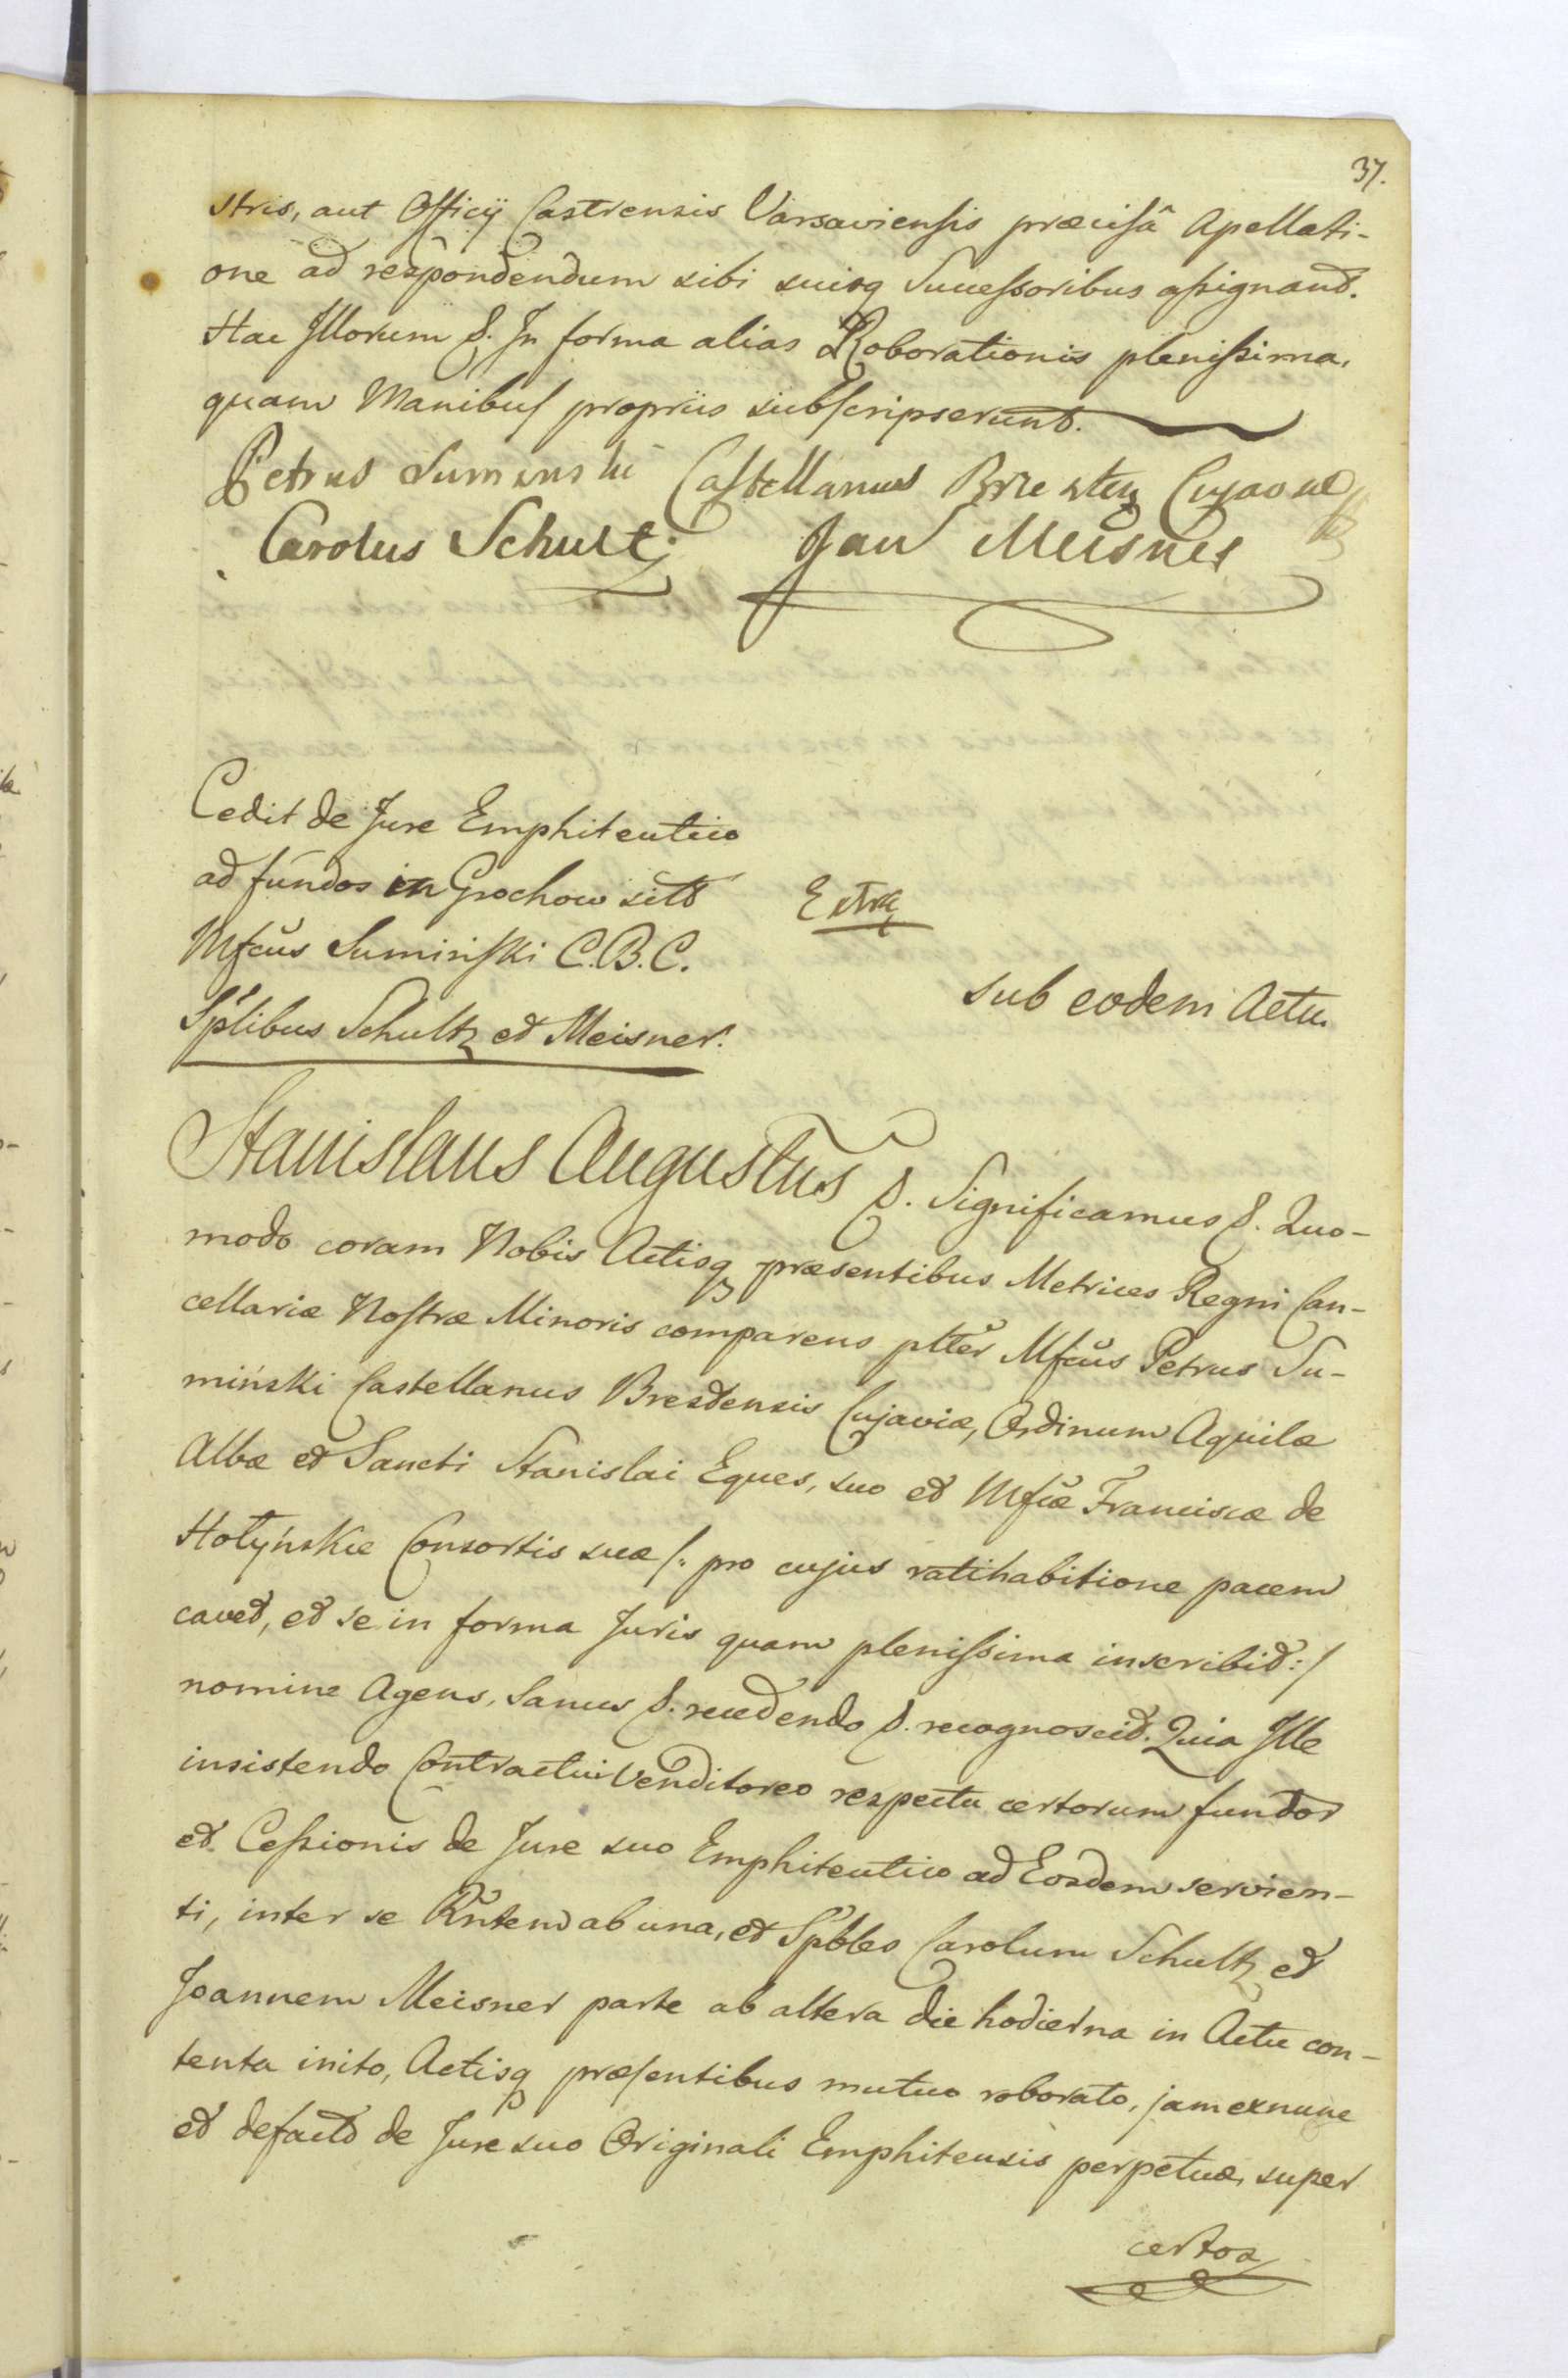 37.
stris, aut Officÿ Castrensis Varsaviensis præcisâ Apellati-
one ad respondendum sibi suisq Successoribus assignand.
Hac Illorum &. In forma alias Roborationis plenissima,
quam Manibus propriis subscripserunt.
Petrus Suminski Castellanus Cujaviæ
Carolus Schultz Jan Meisner
Cedit de Jure Emphiteutico
ad fundos in Grochow sitos
Mfcus Sumiński C.B.C.
Splibus Schultz et Meisner.
Extra
sub eodem Actu.
Stanislaus Augustus &. Significamus &. Quo-
modo coram Nobis Actisq præsentibus Metrices Regni Can-
cellariæ Nostræ Minoris comparens pltter Mfcus Petrus Su-
miński Castellanus Brestensis Cujaviæ, Ordinum Aquilæ
Albæ et Sancti Stanislai Eques, suo et Mfcæ Franciscæ de
Hołyńskie Consortis suæ /: pro cujus ratihabitione pacem
cavet, et se in forma Juris quam plenissima inscribit :/
nomine Agens, Sanus &. recedendo &. recognoscit. Quia Ille
insistendo Contractui Venditoreo respectu certorum fundor
et Cessionis de Jure suo Emphiteutico ad Eosdem servien-
ti, inter se Rñtem ab una, et Spbles Carolum Schultz et
Joannem Meisner parte ab altera die hodierna in Actu con-
tenta inito, Actisq præsentibus mutuo roborato, jam exnunc
et defacto de Jure suo Originali Emphiteusis perpetuæ, super
certos